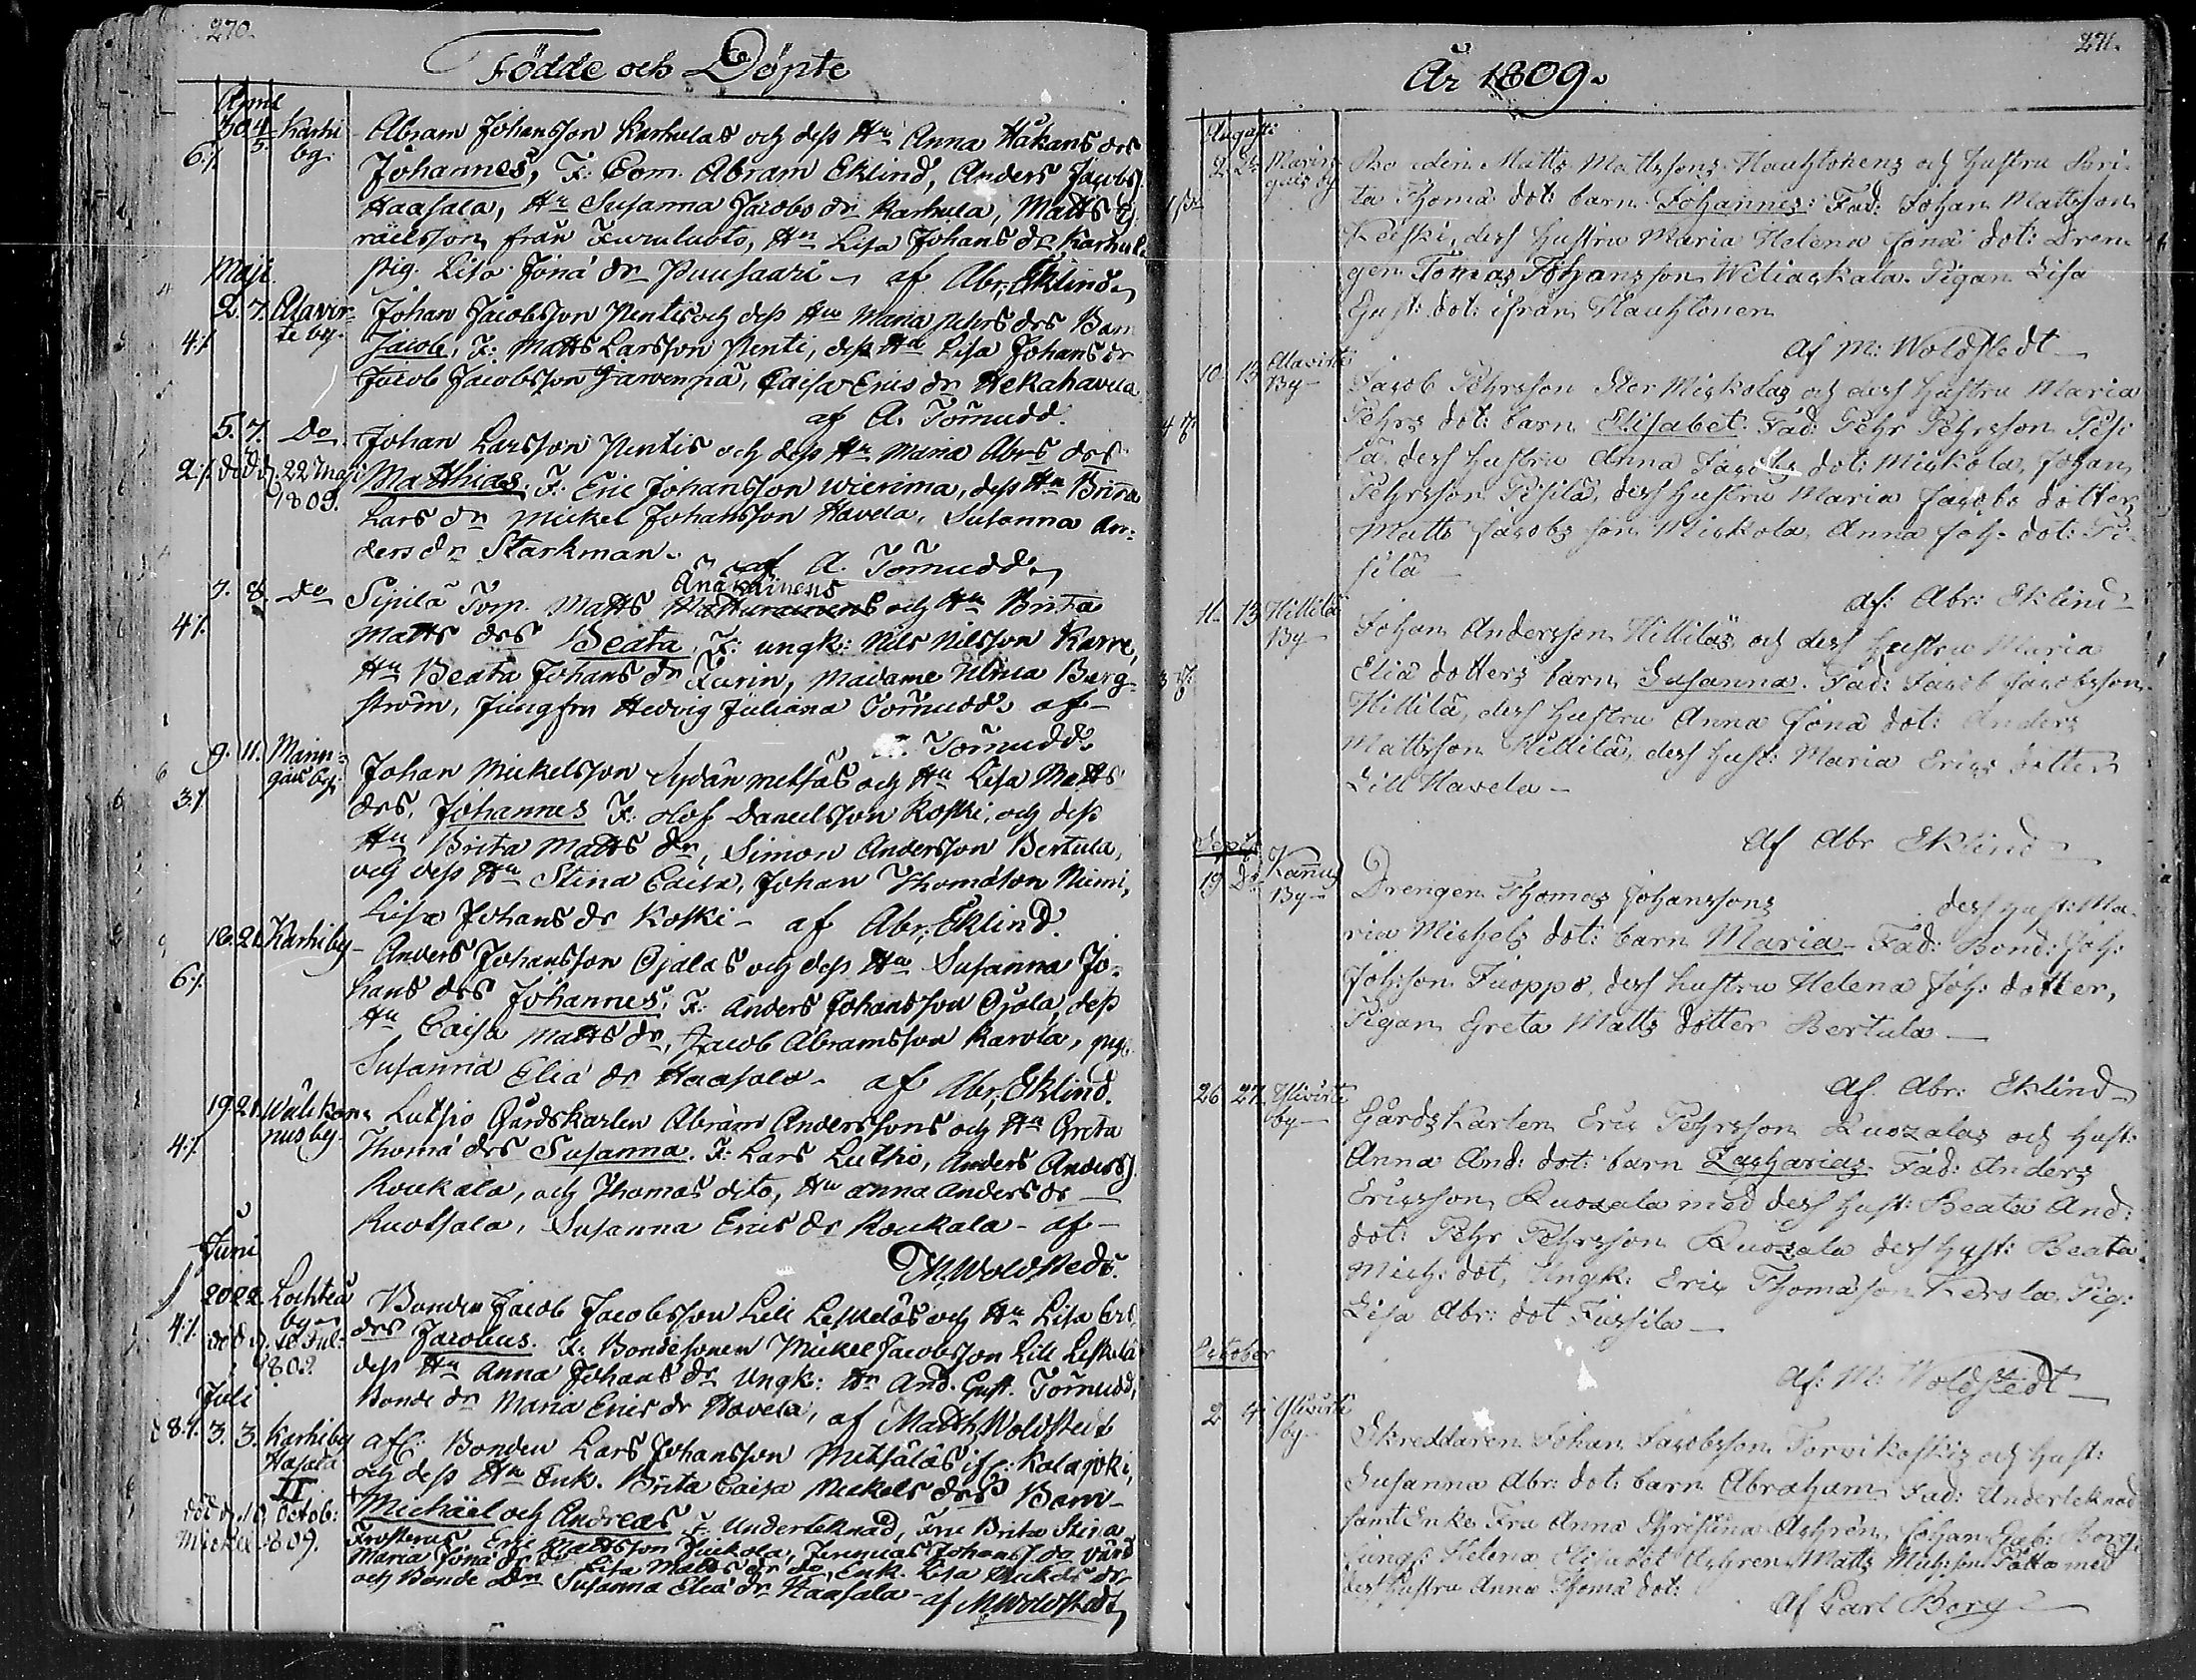 270.
Födde och Döpte
April
30 4/5. Karhi by. Abram Johansson Karhulas och dess Hu Anna Håkans drs
6/. Johannes, F: Com. Abram Eklind, Anders Jacobs
Haasala, Hu Susanna Jacobs dr Karhula, Matts Is-
raelsson från , Hu Lisa Johans dr Karhula
pig. Lisa Jona dr Puusaari – af Abr. Eklind
Maji.
2. 7. Alavirte by. Johan Jacobsson Pentis och dess Hu Maria Pehrs drs Barn
4/. Jacob, F: Matts Larsson Penti, dess Hu Lisa Johans dr
Jacob Jacobsson Jarvenpä, Caisa Erics dr Hekahavela
af A. Törnudd.
5. 7. Do Johan Larsson Pentis och dess Hu Maria Abrs drs
2/. död d. 22 Maji 1809. Matthias. F: Eric Johansson Wierima, dess Hu Brita
Lars dr Mickel Johansson Havela, Susanna An-
ders dr Starkman.
af A. Törnudd
7. 8. Do Sipilä Torp. Matts och Hu Brita
4/. Matts drs Beata, F: ungk: Nils Nilsson Karre,
Hu Beata Johans dr Turin, Madame Ulrica Berg-
ström, Jungfru Hedvig Juliana Törnudd. af
A. Törnudd.
9. 11. Marin- gais by. Johan Mickelsson Sydänmetsäs och Hu Lisa Matts
3/. drs, Johannes F: Olof Danielsson Koski, och dess
Hu Brita Matts dr, Simon Andersson Bertula,
och dess Hu Stina Caisa, Johan Thomasson Niemi,
Lisa Johans dr Koski – af Abr. Eklind.
16. 21. Karhi by – Anders Johansson Ojalas och dess Hu Susanna Jo-
6/. hans drs Johannes, F: Anders Johansson Ojala, dess
Hu Caisa Matts dr, Jacob Abramsson Karola, pig.
Susanna Elia dr Haasala – af Abr. Eklind.
19 21. Wälikan- nus by. Luthio Gårdskarlen Abram Anderssons och Hu Greta
4/. Thoma drs Susanna. F: Lars Luthio, Anders Anderss.
Roukala, och Thomas dito, Hu Anna Anders dr
Ruotsala, Susanna Erics dr Roukala – af
M. Woldstedt.
Juni
20 22. Lochteå by – Bonden Jacob Jacobsson Lill Leskeläs och Hu Lisa Eric
4/. död d. 10 Jul: 1809. drs Jacobus. F: Bondesonen Mickel Jacobsson Lill Leskelä
dess Hu Anna Johans dr Ungk: Hr And. Gust. Törnudd,
Juli
Bonde dr Maria Erics dr Havela, af Matth. Woldstedt
8/. 3. 3. Karhi by Hasala afl: Bonden Lars Johansson Mitsäläs if: Kalajoki,
II och dess Hu Enk. Brita Caisa Mickels drs Barn
död d. 10 Octob: Mickel 1809. Michäel och Andreas F: Underteknad, Fru Brita Stina
Frosterus, Eric Mattsson Juckola, Jeremias Johanss. do
Maria Jona dr do Lisa Matts dr do, Enk. Lisa Mickels dr
och Bonde dr Susanna Elia dr Haasala – af M. Woldstedt
271.
År 1809.
Augusti
2 Marin gais by Bonden Matts Mattssons Hauhtonens och hustru Bri-
ta Thoma dot: barn Johannes: Fad: Johan Mattsson
Keiski, dess hustru Maria Helena Jona dot: Dren-
gen Tomas Johansson Wetiaskala. Pigan Lisa
Gust: dot: ifrån Hauhtonen
Af M: Woldstedt
10. 13 Alavirte By – Jacob Pehrsson Stor Miskolas och dess hustru Maria
Pehrs dot: barn Elisabet. Fad: Pehr Pehrsson Pesi-
lä, dess hustru Anna Jacobs dot: Miskola, Johan
Pehrsson Pesilä, dess hustru Maria Jacobs dotter,
Matts Jacobs son Miskola, Anna Joh. dot: Pe-
silä –
af: Abr: Eklind –
11. 13 Hillilä By – Johan Andersson Hilliläs och dess hustru Maria
Elia dotters barn Susanna. Fad: Jacob Jacobsson
Hillilä, dess hustru Anna Jona dot: Anders
Mattsson Hillilä, dess hust: Maria Erics dotter
Lill Havela –
af Abr Eklind –
Sept
19 Do Kanus By – Drengen Thomas Johanssons dess hust: Ma-
ria Michels dot: barn Maria – Fad: Bond: Joh:
Joh:son Juoppo, dess hustru Helena Joh: dotter,
Pigan Greta Matts dotter Bertula –
Af. Abr: Eklind
26 27. Ylivirte by – Gårdskarlen Eric Pehrsson Ruozalas och hust:
Anna And: dot: barn Zacharias. Fad: Anders
Ericsson Ruozala med dess hust: Beata And:
dot: Pehr Pehrsson Ruozala dess hust: Beata
Mich: dot, Ungk: Eric Thomasson Kerola, Pig:
Lisa Abr: dot Jussila –
Af: M: Woldstedt –
October
2 4 Ylivirte by – Skreddaren Johan Jacobsson Torvikoskis och hust:
Susanna Abr: dot: barn Abraham Fad: Underteknad
samt Enke Fru Anna Christina Aschren, Johan Gab: Borg,
Jungf: Helena Elisabet Aschren, Matts Mich:son Fatta med
dess hustru Anna Thoma dot:
Af Carl Borg